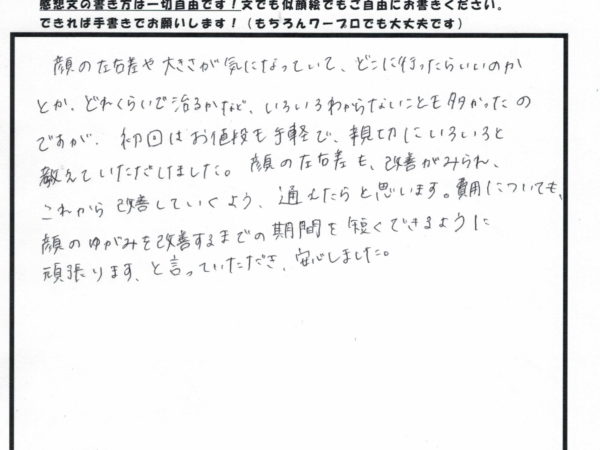 感想文の書き方は一切自由です！文でも似顔絵でもご自由にお書きください。
できれば手書きでお願いします！（もちろんワープロでも大丈夫です）
顔の左右差や大きさが気になっていて、どこに行ったらいいのか
とか、どれくらいで治るかなど、いろいろわからないことも多かったの
ですが、初回はお値段も手軽で、親切にいろいろと
教えていただけました。顔の左右差も、改善がみられ、
これから改善していくよう、通えたらと思います。費用についても、
顔のゆがみを改善するまでの期間を短くできるように
頑張ります、と言っていただき、安心しました。